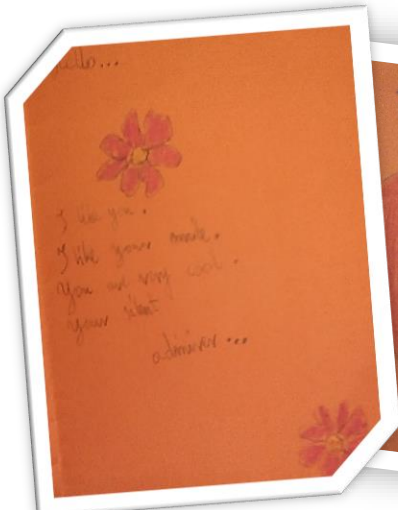 Hello...
I you.
I like your smile.
You are very cool.
Your silent
admirer...